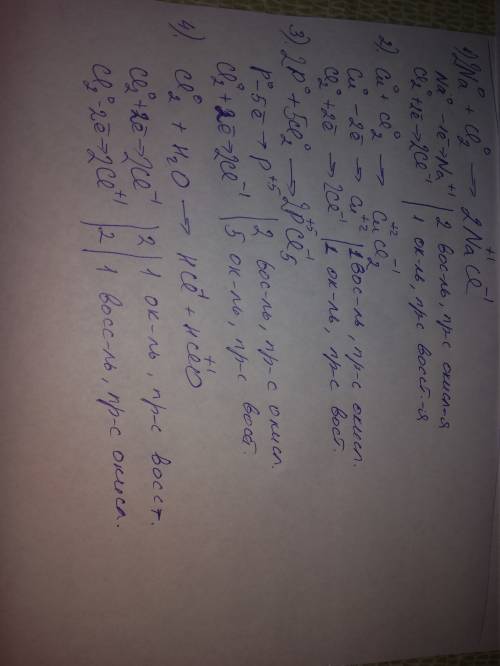 1) 2Na⁰ + Cl₂⁰ → 2Na⁺¹Cl⁻¹
Na⁰ -1е→Na⁺¹ | 2 вос-ль, пр-с окисл-я
Cl₂⁰ +2е→2Cl⁻¹ | 1 ок-ль, пр-с восст-я
2) Cu⁰ + Cl₂⁰ → Cu⁺²Cl₂⁻¹
Cu⁰ - 2е → Cu⁺² | 1 вос-ль, пр-с окисл.
Cl₂⁰ + 2е → 2Cl⁻¹ | 1 ок-ль, пр-с вост.
3) 2P⁰ + 5Cl₂⁰ → 2P⁺⁵Cl₅⁻¹
P⁰ - 5е → P⁺⁵ | 2 вос-ль, пр-с окисл.
Cl₂⁰ + 2е → 2Cl⁻¹ | 5 ок-ль, пр-с вост.
4). Cl₂⁰ + H₂O → HCl⁻¹ + HCl⁺¹O
Cl₂⁰ + 2е → 2Cl⁻¹ | 2 | 1 ок-ль, пр-с восст.
Cl₂⁰ - 2е → 2Cl⁺¹ | 2 | 1 восс-ль, пр-с окисл.